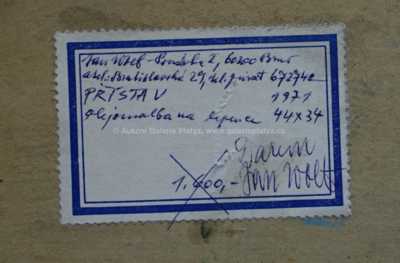 Jan Wolf - Ponávka 2, 60200 Brno
atel. Bratislavská 29, tel. privat 672740
PŘÍSTAV 1971
olejomalba na lepence 44x34
© Aukční Galerie Platýz, www.galerieplatyz.cz
1.600,-
Jan Wolf